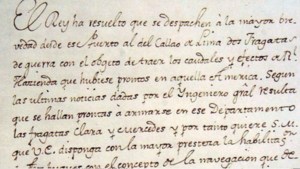 El Rey ha resuelto que se despachen à la mayor bre
vedad desde ese Puerto al del Callao de Lima dos Fragatas
de guerra con el objeto de traer los caudales y efectos de Rl
Hacienda que hubiese prontos en aquella America. Segun
las ultimas noticias dadas por el Yngeniero gral resulta
que se hallan prontas à armarse en ese Departamento
las fragatas Clara y Mercedes y por tanto quiere S.M.
que V.E. disponga con la mayor presteza la habilitacn
con el concepto de la navegacion que